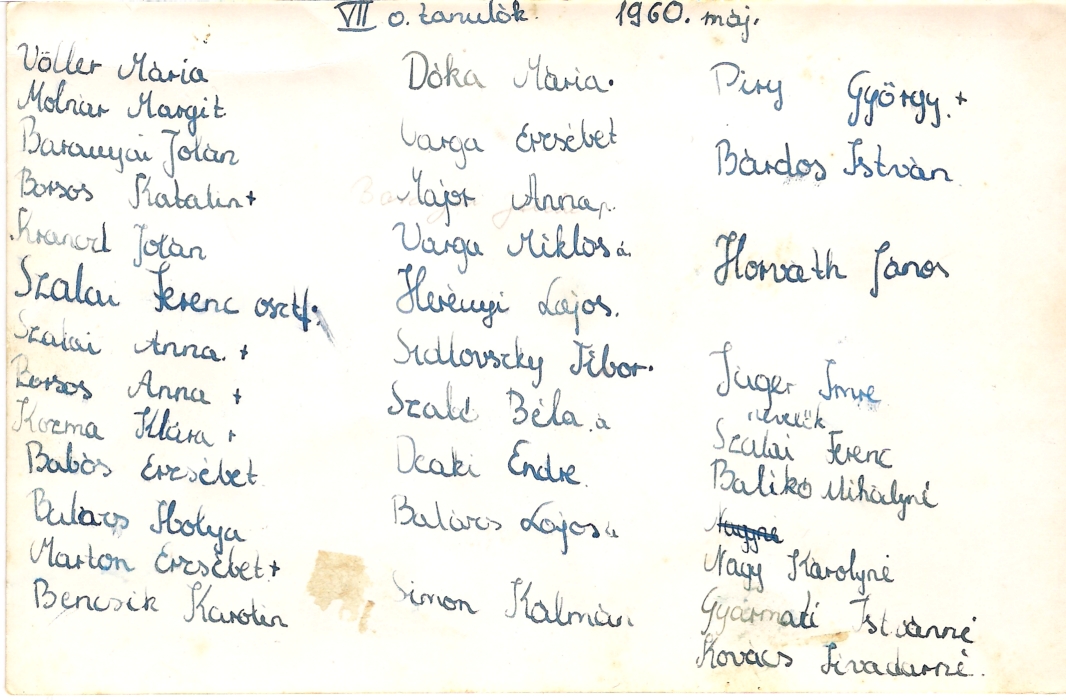 VII o. tanulók. 1960. máj.
Völler Mária
Molnár Margit
Baranyai Jolán
Borsos Katalin +
Kranerl Jolán
Szalai Ferenc osztf.
Szalai Anna. +
Borsos Anna +
Kozma Klára +
Babós Erzsébet
Balázs Ibolya
Márton Erzsébet +
Bencsik Karolin
Dóka Mária.
Varga Erzsébet
Major Anna
Varga Miklós á.
Herényi Lajos.
Sidlovszky Tibor.
Szabó Béla. á
Deáki Endre
Balázs Lajos á
Simon Kálmán
Piry György. +
Bárdos István
Horváth János
Juger Imre
nevelők
Szalai Ferenc
Balikó Mihályné
Nagyné
Nagy Károlyné
Gyarmati Istvánné
Kovács Tivadarné.